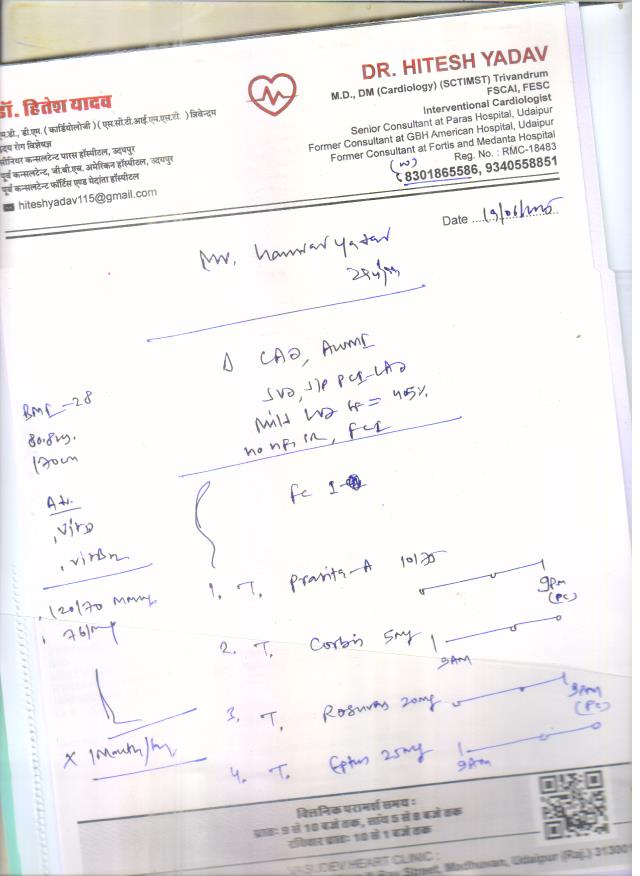 डॉ. हितेश यादव
एम.डी., डी.एम. (कार्डियोलोजी) (एस.सी.टी.आई.एम.एस.टी.) त्रिवेन्द्रम
हृदय रोग विशेषज्ञ
सीनियर कन्सलटेन्ट पारस हॉस्पीटल, उदयपुर
पूर्व कन्सलटेन्ट, जी.बी.एच. अमेरिकन हॉस्पीटल, उदयपुर
पूर्व कन्सलटेन्ट फोर्टिस एण्ड मेदांता हॉस्पीटल
hiteshyadav115@gmail.com
DR. HITESH YADAV
M.D., DM (Cardiology) (SCTIMST) Trivandrum
FSCAI, FESC
Interventional Cardiologist
Senior Consultant at Paras Hospital, Udaipur
Former Consultant at GBH American Hospital, Udaipur
Former Consultant at Fortis and Medanta Hospital
Reg. No. : RMC-18483
(W)
8301865586, 9340558851
Date
Mr. Yadav
Δ CAD, AWMI
SVD, S/P PCI-LAD
Mild LVD EF = 45%
BMI - 28
80.8kg.
170cm
FC I
Adv.
, Vit D
, Vit B12
120/70 mmHg
76/m
1. T. Prasita-A 10/75
9pm
(PC)
2. T. Corbis 5mg
9AM
3. T. Rosuvas 20mg
9AM
(PC)
4. T. Eptus 25mg
9AM
X 1 Month
क्लिनिक परामर्श समय :
प्रातः 9 से 10 बजे तक, सायं 5 से 8 बजे तक
रविवार प्रातः 10 से 1 बजे तक
VASUDEV HEART CLINIC :
Street, Madhuvan, Udaipur (Raj.) 31300